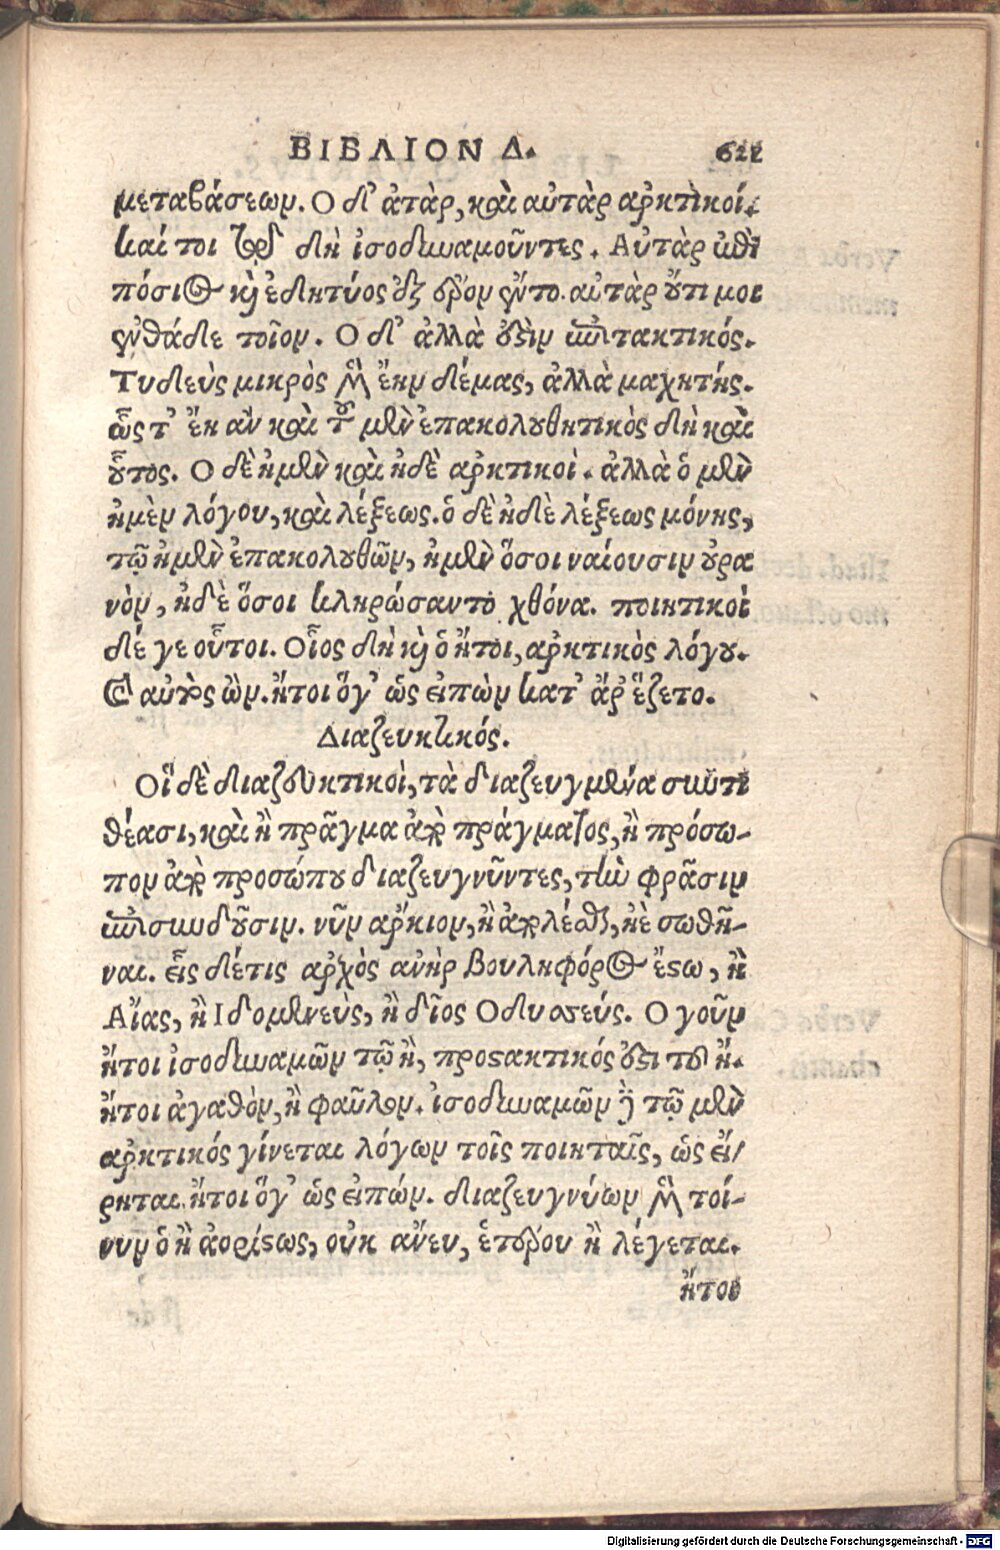 ΒΙΒΛΙΟΝ Δ.
μεταβάσεων. Ο δ' ἀτὰρ, καὶ αὐτὰρ ἀρκτικοί.
καί τοι τῷ δὴ ἰσοδυναμοῦντες. Αὐτὰρ ἐπεὶ
πόσιος καὶ ἐδητύος ἐξ ἔρον ἕντο. αὐτὰρ οὔτι μοι
ἐνθάδε τοῖον. Ο δ' ἀλλὰ οὐδὲν ὑποτακτικός.
Τυδεὺς μικρὸς μὲν ἔην δέμας, ἀλλὰ μαχητής.
ὥς τ' ἔη ἂν καὶ τοῦ μὲν ἐπακολουθητικὸς δὴ καὶ
οὗτος. Ο δὲ ἠμὲν καὶ ἠδὲ ἀρκτικοὶ. ἀλλὰ ὁ μὲν
ἠμὲν λόγου, καὶ λέξεως. ὁ δὲ ἠδὲ λέξεως μόνης,
τῷ ἠμὲν ἐπακολουθῶν, ἠμὲν ὅσοι ναίουσιν οὐρα
νὸν, ἠδὲ ὅσοι κληρώσαντο χθόνα. ποιητικοὶ
δέ γε οὗτοι. Οἷος δὴ καὶ ὁ ἤτοι, ἀρκτικὸς λόγου.
ὢν. ἤτοι ὅγ' ὡς εἰπὼν κατ' ἄρ ἕζετο.
Διαζευκτικός.
Οἵ δὲ διαζευκτικοὶ, τὰ διαζευγμένα συντι
θέασι, καὶ ἢ πρᾶγμα ἀπὸ πράγματος, ἢ πρόσω-
πον ἀπὸ προσώπου διαζευγνῦντες, τὴν φρᾶσιν
ἐπισυνδοῦσιν. νῦν ἄρκιον, ἢ ἀπολέσθαι, ἠὲ σωθῆ-
ναι. εἷς δέ τις ἀρχὸς ἀνὴρ βουληφόρος ἔστω, ἢ
Αἴας, ἢ Ιδομενεὺς, ἢ δῖος Οδυσσεύς. Ο γοῦν
ἤτοι ἰσοδυναμῶν τῷ ἢ, προστακτικός ἐστι τοῦ ἤ.
ἤτοι ἀγαθὸν, ἢ φαῦλον. ἰσοδυναμῶν δὲ τῷ μὲν
ἀρκτικός γίνεται λόγων τοῖς ποιηταῖς, ὡς εἴ/
ρηται. ἤτοι ὅγ' ὡς εἰπών. διαζευγνύων μὲν τοί-
νυν ὁ ἢ ἀορίστως, οὐκ ἄνευ, ἑτέρου ἢ λέγεται.
ἤτοι
Digitalisierung gefördert durch die Deutsche Forschungsgemeinschaft - DFG